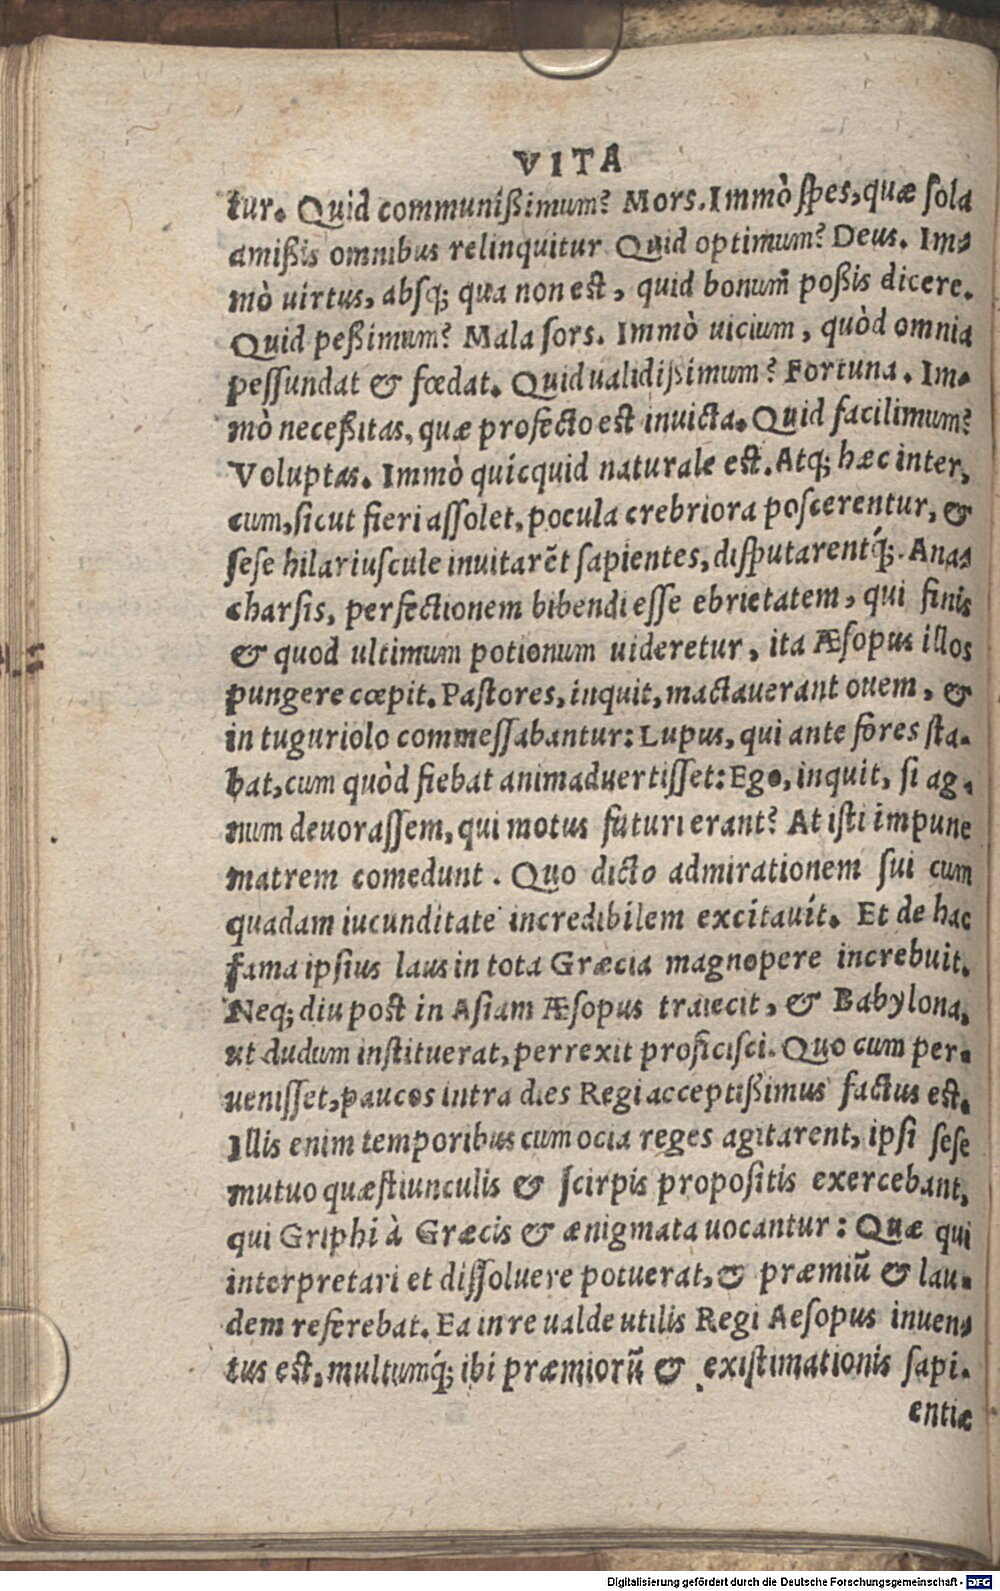 VITA
tur. Quid communißimum? Mors. Immò spes, quæ sola
amißis omnibus relinquitur Quid optimum? Deus. Im-
mò uirtus, absq; qua non est, quid bonum̃ poßis dicere.
Quid peßimum? Mala sors. Immò uicium, quòd omnia
pessundat & fœdat. Quid ualidißimum? Fortuna. Im-
mò neceßitas, quæ profecto est inuicta. Quid facilimum?
Voluptas. Immò quicquid naturale est. Atq; hæc inter,
cum, sicut fieri assolet, pocula crebriora poscerentur, &
sese hilariuscule inuitarẽt sapientes, disputarentq́;. Ana-
charsis, perfectionem bibendi esse ebrietatem, qui finis
& quod ultimum potionum uideretur, ita Æsopus illos
pungere cœpit. Pastores, inquit, mactauerant ouem, &
in tuguriolo commessabantur: Lupus, qui ante fores sta-
bat, cum quòd fiebat animaduertisset: Ego, inquit, si ag-
num deuorassem, qui motus futuri erant? At isti impune
matrem comedunt. Quo dicto admirationem sui cum
quadam iucunditate incredibilem excitauit. Et de hac
fama ipsius laus in tota Græcia magnopere increbuit.
Neq; diu post in Asiam Æsopus traiecit, & Babylona,
ut dudum instituerat, perrexit proficisci. Quo cum per-
uenisset, paucos intra dies Regi acceptißimus factus est.
Illis enim temporibus cum ocia reges agitarent, ipsi sese
mutuo quæstiunculis & scirpis propositis exercebant,
qui Griphi à Græcis & ænigmata uocantur: Quæ qui
interpretari et dissoluere potuerat, & præmiũ & lau-
dem referebat. Ea in re ualde utilis Regi Aesopus inuen-
tus est, multumq́; ibi præmiorũ & existimationis sapi-
entiæ
Digitalisierung gefördert durch die Deutsche Forschungsgemeinschaft - DFG